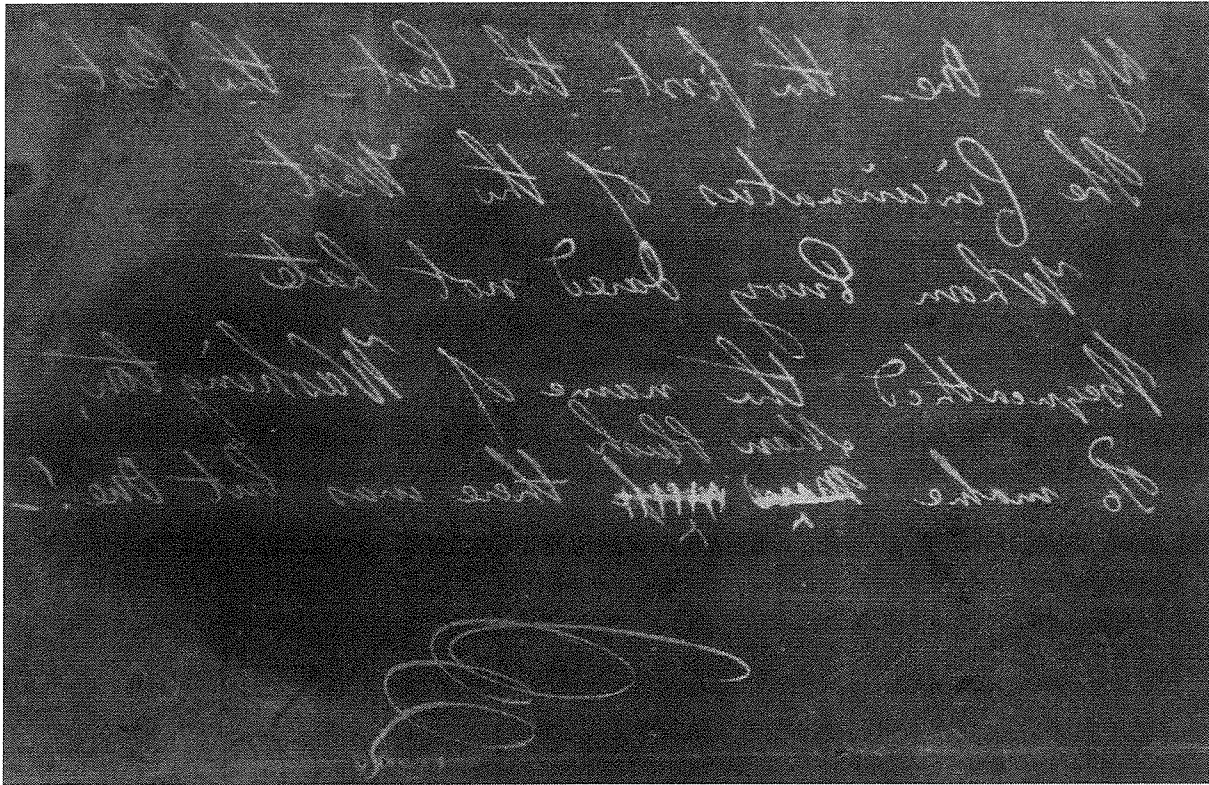 Yes – One – the first – the last – the best
The Cincinnatus of the West
Whom Envy dared not hate
Bequeathed the name of Washington,
Men blush
To make there was but One!